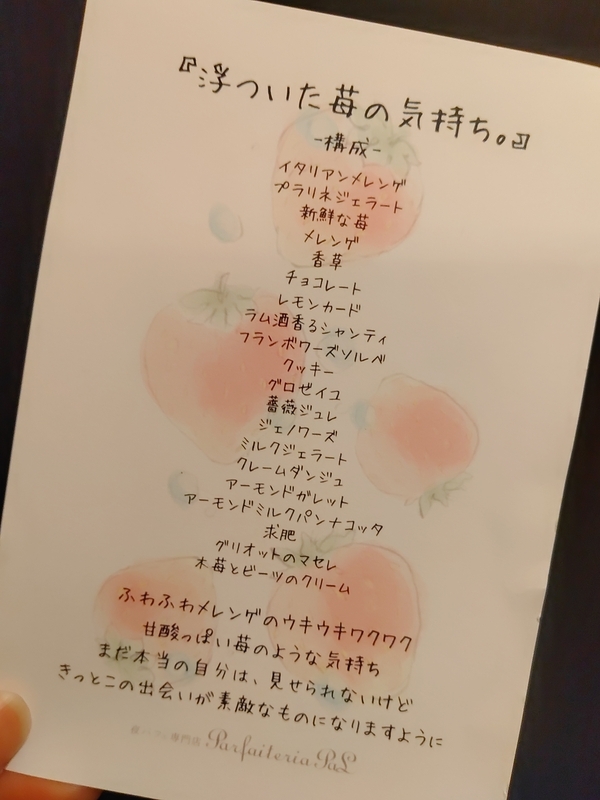 『浮ついた苺の気持ち。』
-構成-
イタリアンメレンゲ
プラリネジェラート
新鮮な苺
メレンゲ
香草
チョコレート
レモンカード
ラム酒香るシャンティ
フランボワーズソルベ
クッキー
グロゼイユ
薔薇ジュレ
ジェノワーズ
ミルクジェラート
クレームダンジュ
アーモンドガレット
アーモンドミルクパンナコッタ
求肥
グリオットのマセレ
木苺とビーツのクリーム
ふわふわメレンゲのウキウキワクワク
甘酸っぱい苺のような気持ち
まだ本当の自分は、見せられないけど
きっとこの出会いが素敵なものになりますように
専門店 Parfaiteria PaL